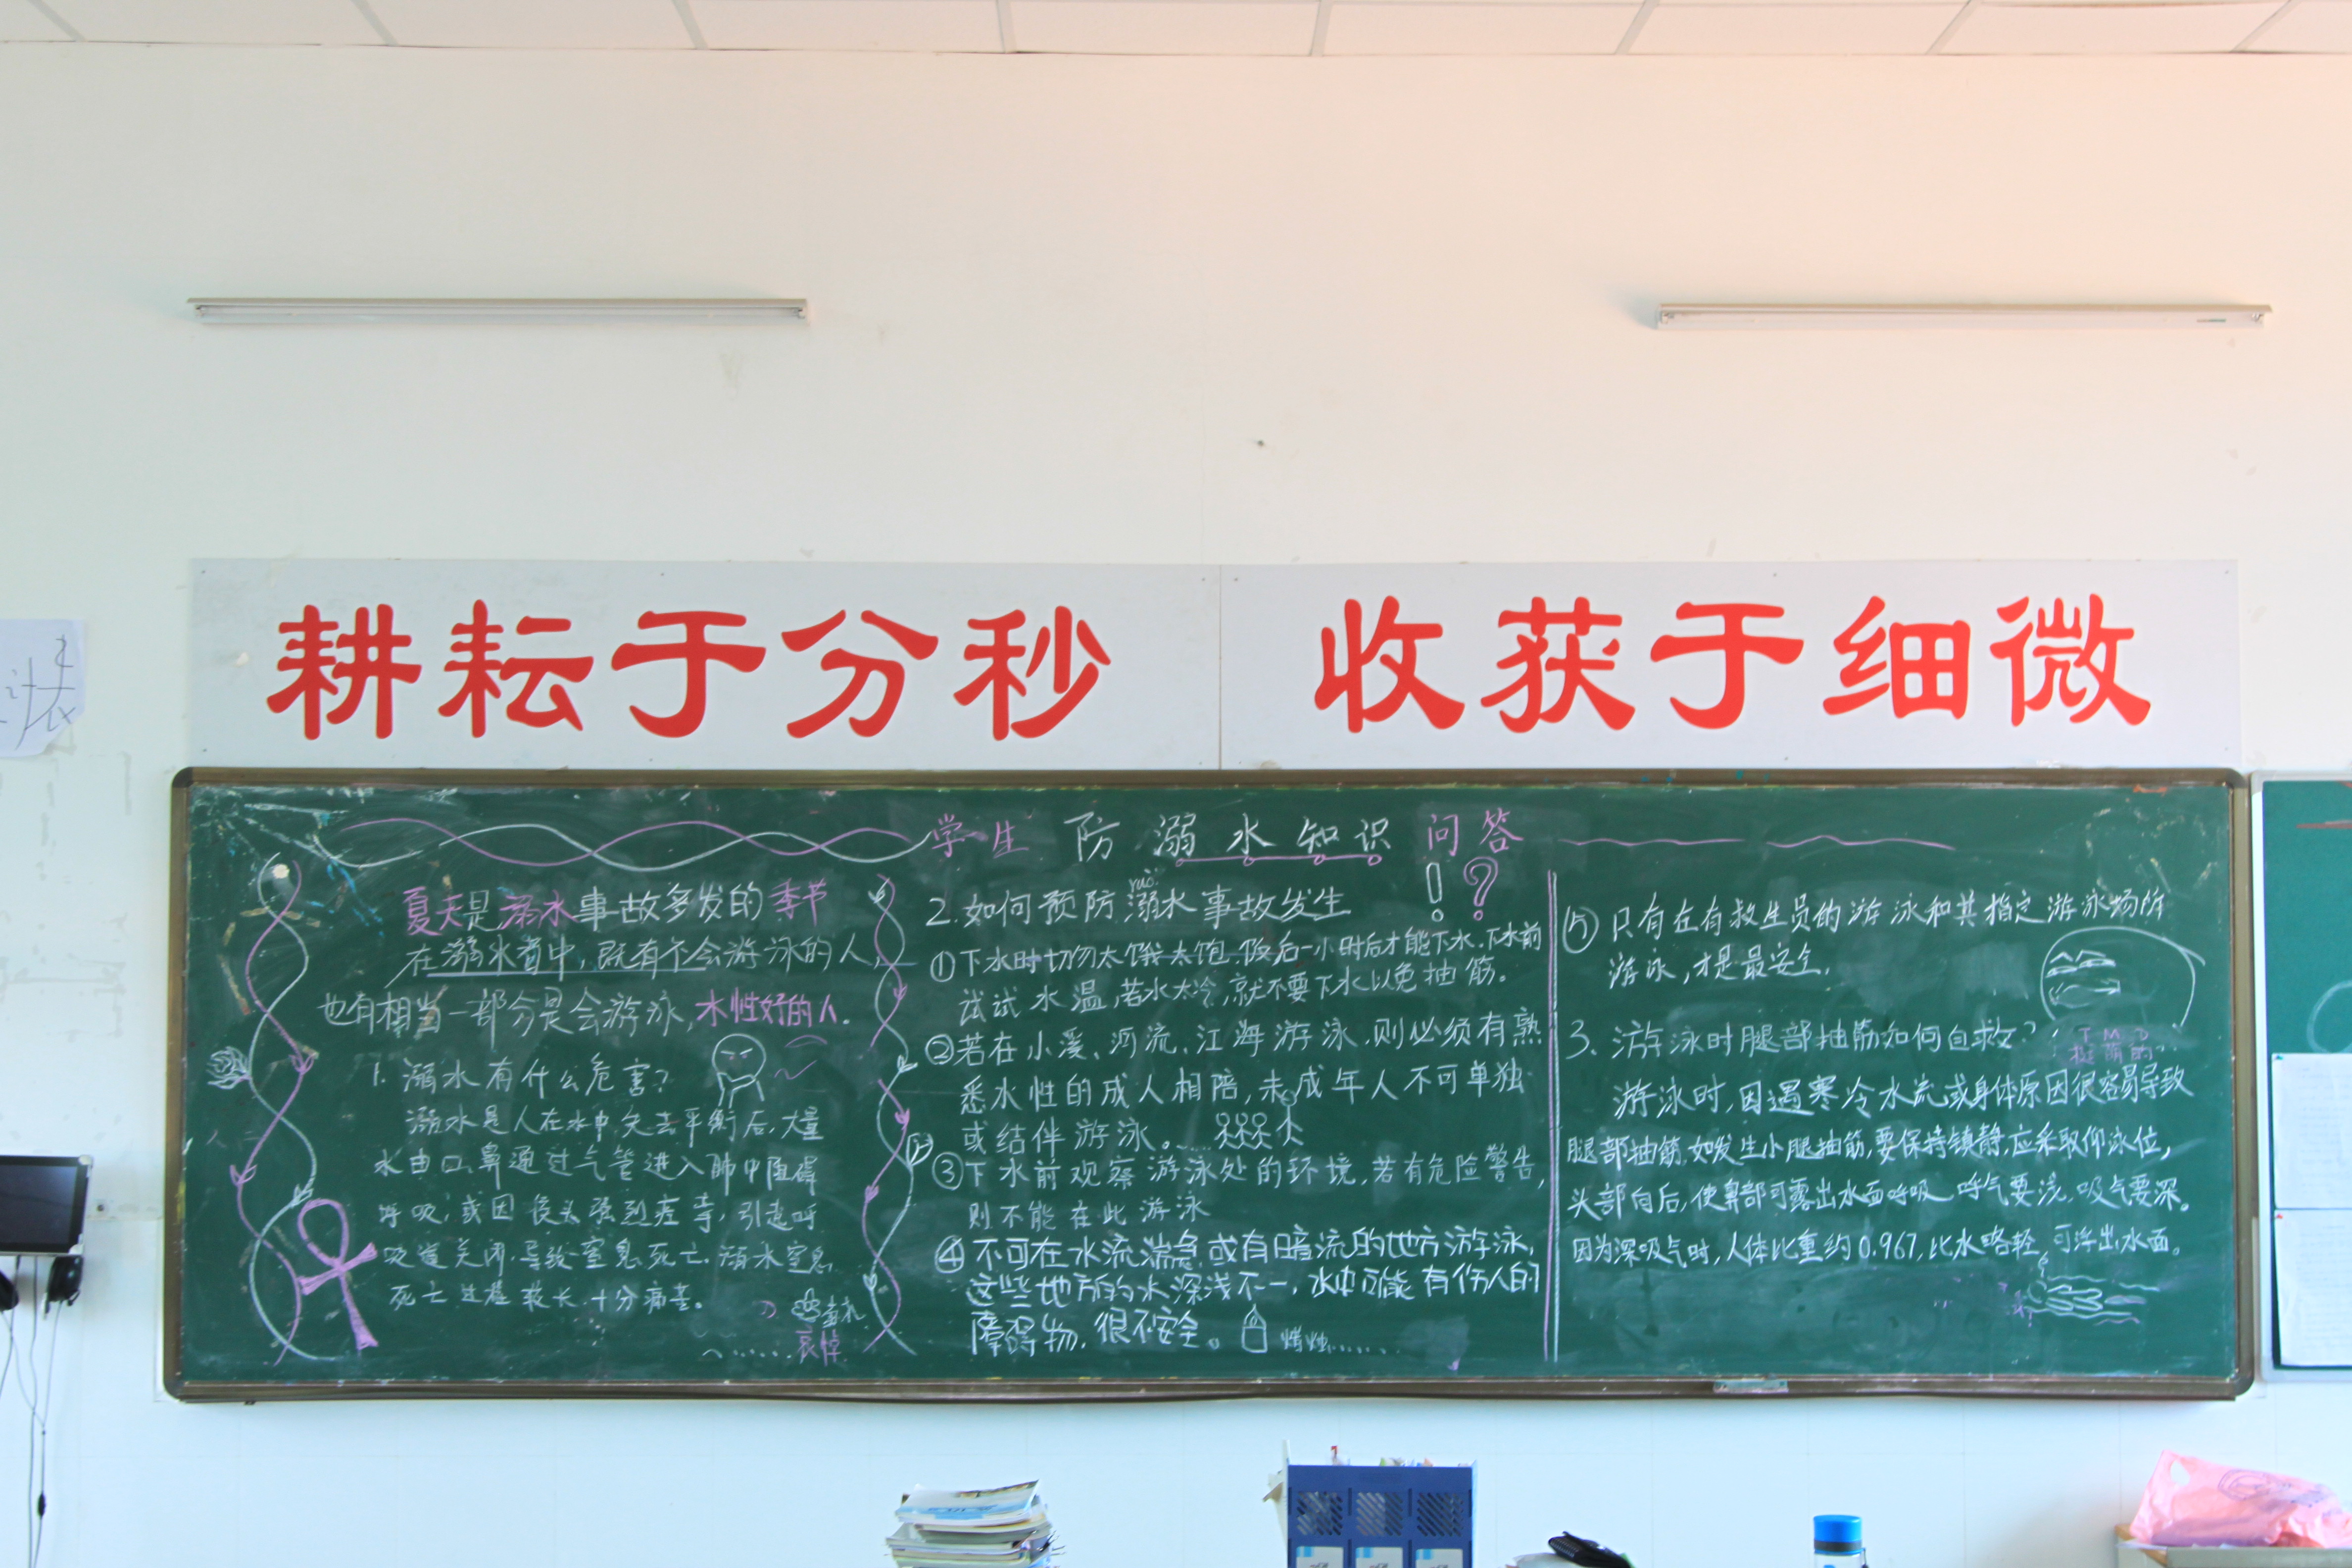 耕耘于分秒 收获于细微
学生防溺水知识问答
夏天是溺水事故多发的季节
在溺水者中,既有不会游泳的人,
也有相当一部分是会游泳,水性好的人.
1. 溺水有什么危害?
溺水是人在水中失去平衡后,大量
水由口鼻通过气管进入肺中阻碍
呼吸,或因喉头强烈痉挛,引起呼
吸道关闭.导致窒息死亡.溺水窒息
死亡过程较长,十分痛苦。
哀悼
2.如何预防溺水事故发生
!?
①下水时切勿太饿太饱.饭后一小时后才能下水.下水前
试试水温,若水太冷,就不要下水以免抽筋。
②若在小溪、河流、江海游泳,则必须有熟
悉水性的成人相陪,未成年人不可单独
或结伴游泳。
③下水前观察游泳处的环境,若有危险警告,
则不能在此游泳
④不可在水流湍急或有暗流的地方游泳,
这些地方的水深浅不一,水中可能有伤人的
障碍物,很不安全。
⑤只有在有救生员的游泳和其指定游泳场所
游泳,才是最安全.
3.游泳时腿部抽筋如何自救?
游泳时,因遇寒冷水流或身体原因很容易导致
腿部抽筋,如发生小腿抽筋,要保持镇静,应采取仰泳位,
头部向后,使鼻部可露出水面呼吸 呼气要浅,吸气要深。
因为深吸气时,人体比重约0.967,比水略轻,可浮出水面。